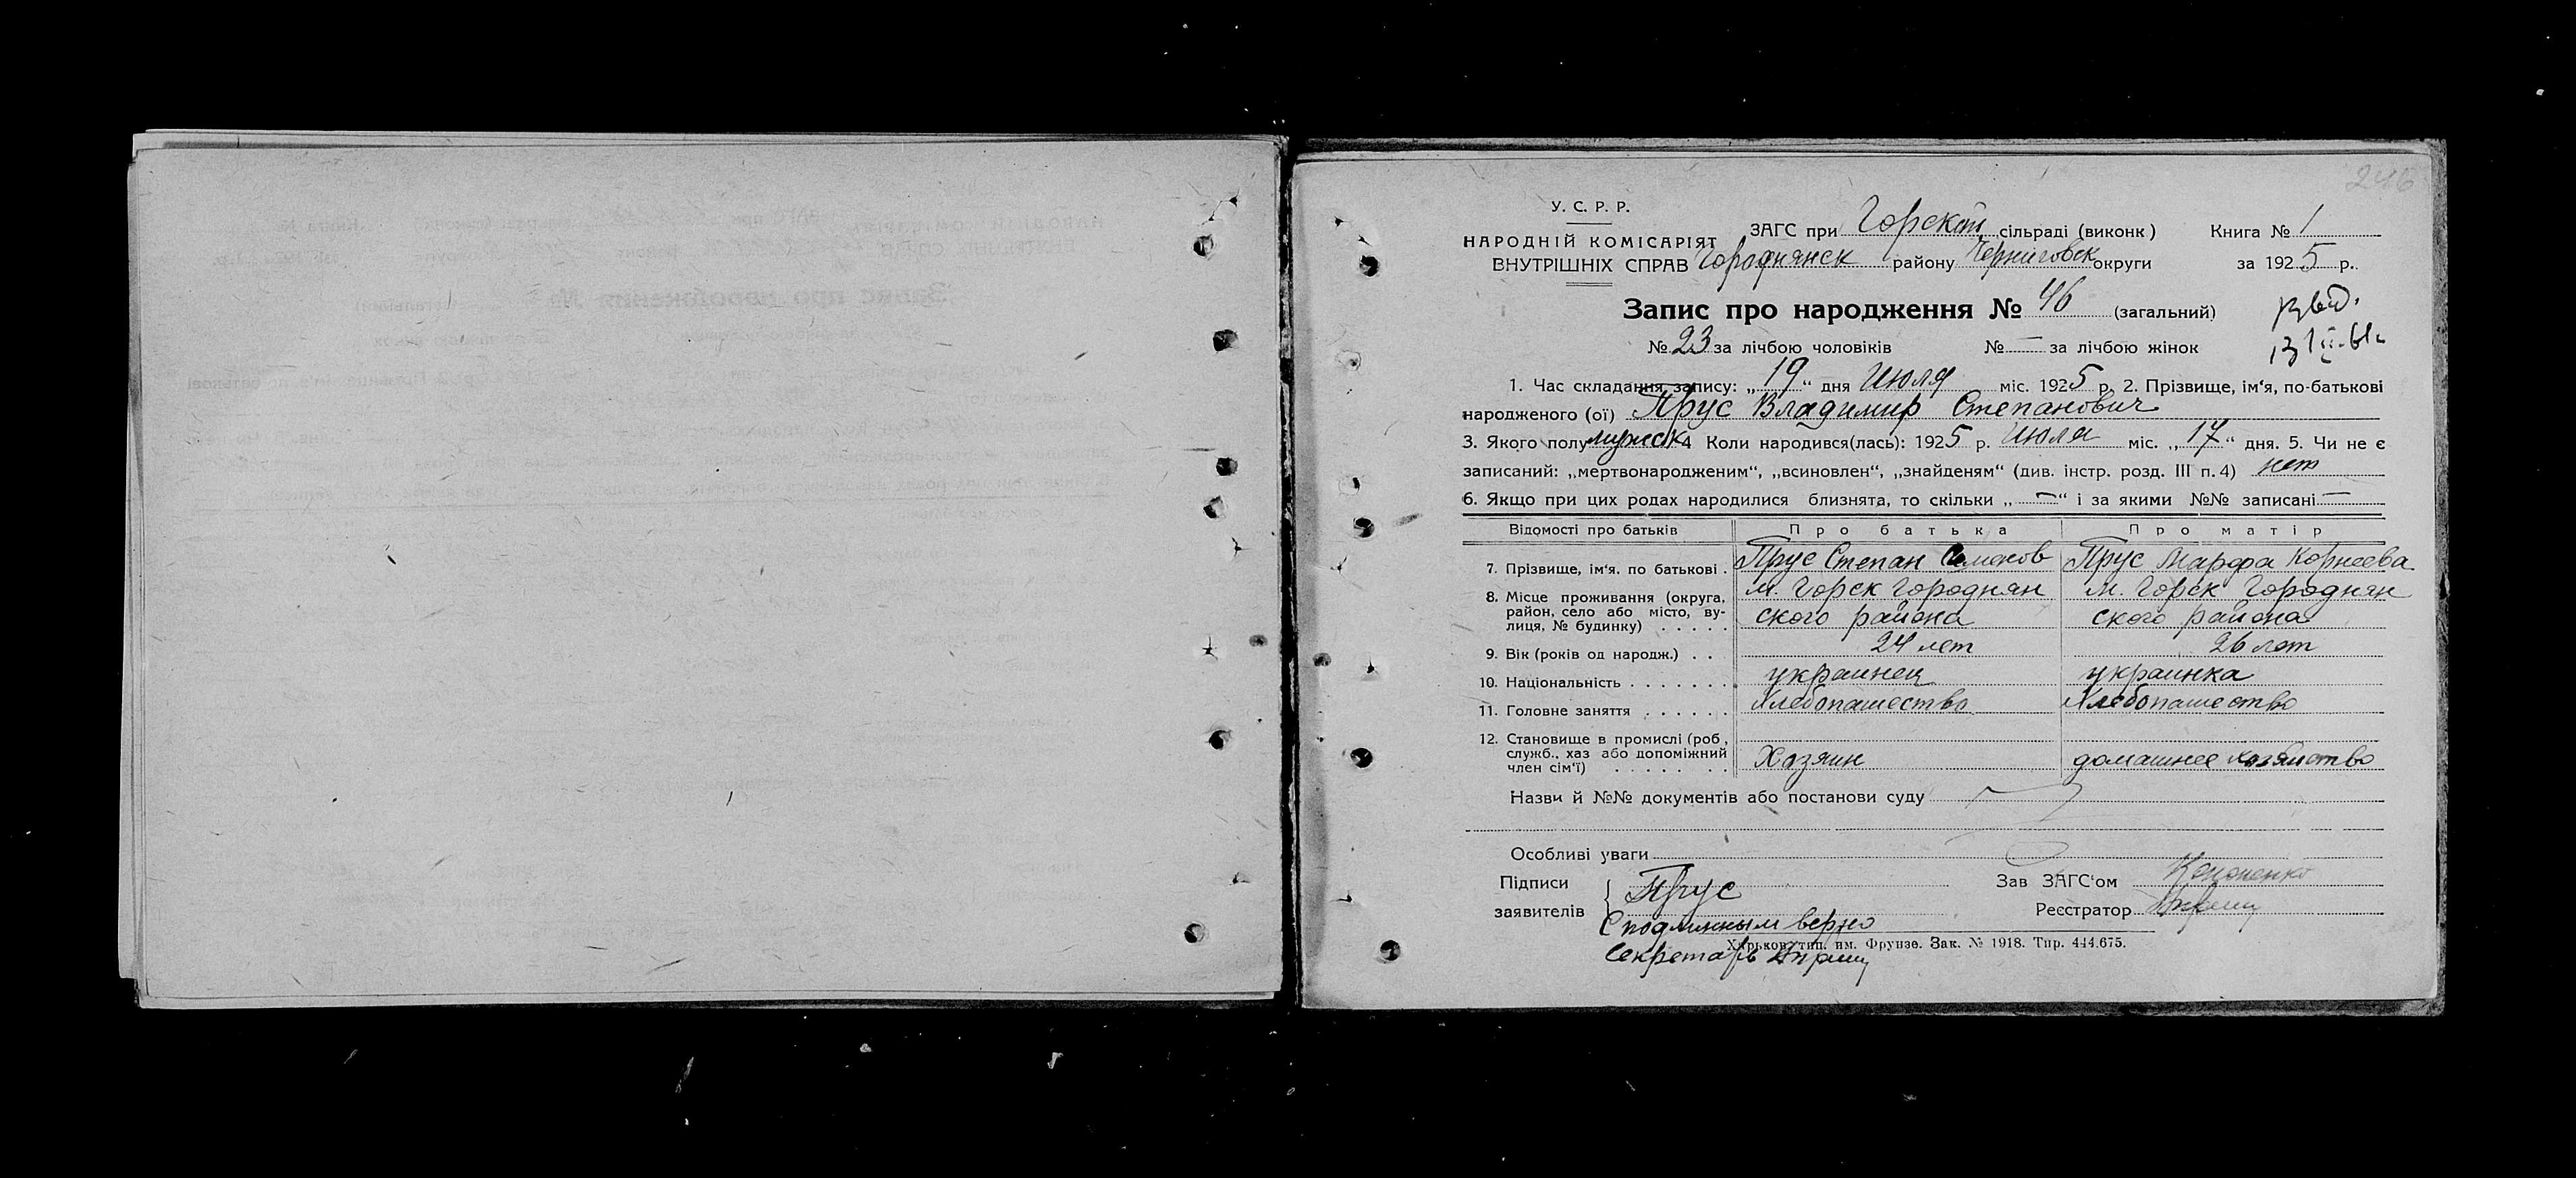 246
У. С. Р. Р.
НАРОДНІЙ КОМІСАРІЯТ
ВНУТРІШНІХ СПРАВ
ЗАГС при Горской сільраді (виконк) Книга № 1
Городнянск району Черниговск округи за 1925 р.
Запис про народження № 46 (загальний)
№ 23 за лічбою чоловіків № — за лічбою жінок
1. Час складання запису: „19“ дня Июля міс. 1925 р. 2. Прізвище, ім‘я, по-батькові
народженого (ої) Прус Владимир Степанович
3. Якого полу мужск 4 Коли народився(лась): 1925 р. Июля міс. „17“ дня. 5. Чи не є
записаний: „мертвонародженим“, „всиновлен“, „знайденям“ (див. інстр. розд. III п. 4) нет
6. Якщо при цих родах народилися близнята, то скільки „—“ і за якими №№ записані —
Відомості про батьків Про батька Про матір
7. Прізвище, ім‘я. по батькові . Прус Степан Семенов Прус Марфа Корнеева
8. Місце проживання (округа, м. Горск Городнян м. Горск Городнян
район, село або місто, ву- ского района ского района
лиця, № будинку) . . . . .
9. Вік (років од народж.) . . 24 лет 26 лет
10. Національність . . . . . . . украинец украинка
11. Головне заняття . . . . . . Хлебопашество Хлебопашество
12. Становище в промислі (роб,
служб., хаз або допоміжний
член сім‘ї) . . . . . . . Хозяин домашнее хозяйство
Назви й №№ документів або постанови суду
Особливі уваги
Підписи Прус Зав ЗАГС‘ом Кононенко
заявителів Реєстратор
С подлинным верно
Харьков, тип. им. Фрунзе. Зак. № 1918. Тир. 444.675.
Секретарь